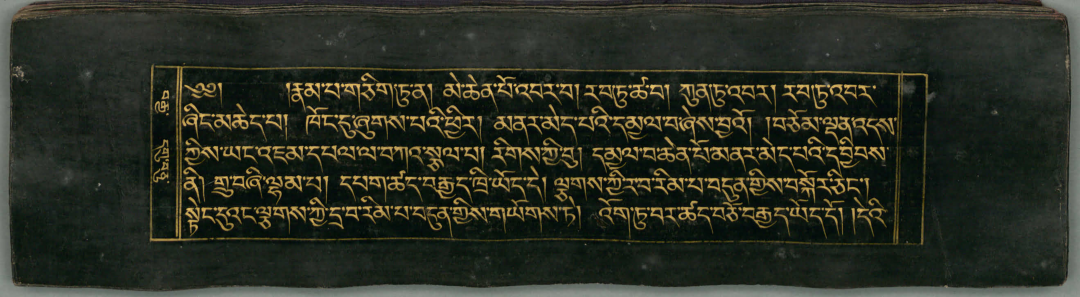 ༄༅། །རྣམ་པ་གཅིག་ཏུ་ན། མེ་ཆེན་པོ་འབར་བ། རབ་ཏུ་ཚ་བ། ཀུན་ཏུ་འབར། རབ་ཏུ་འབར་
ཞིང་མཆེད་པ། ཁོང་དུ་ཞུགས་པའི་ཕྱིར། མནར་མེད་པའི་དམྱལ་བ་ཞེས་བྱའོ། །བཅོམ་ལྡན་འདས་
ཀྱིས་ཡང་འཇམ་དཔལ་ལ་བཀའ་སྩལ་པ། རིགས་ཀྱི་བུ། དམྱལ་བ་ཆེན་པོ་མནར་མེད་པའི་དབྱིབས་
ནི། གྲུ་བཞི་ལྷམ་པ། དཔག་ཚད་བརྒྱད་ཁྲི་ཡོད་དེ། ལྕགས་ཀྱི་ར་བ་རིམ་པ་བདུན་གྱིས་བསྐོར་ཅིང་།
སྟེང་དུའང་ལྕགས་ཀྱི་དྲ་བ་རིམ་པ་བདུན་གྱིས་གཡོགས་ཏེ། འོག་ཏུ་བར་ཚད་བཅོ་བརྒྱད་ཡོད་དོ། །དེའི་